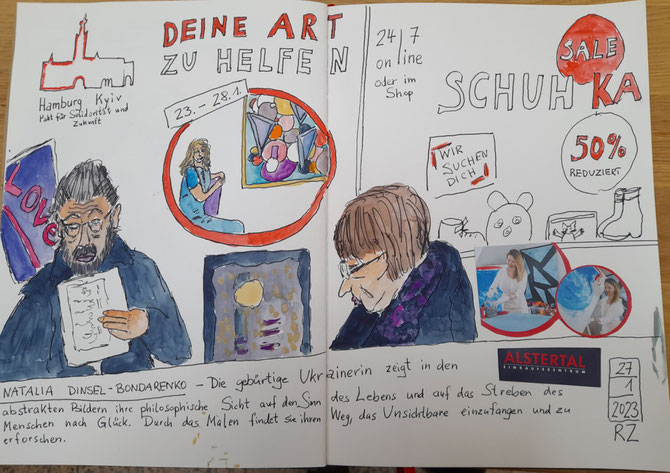 DEINE ART
ZU HELFEN
Hamburg Kyiv
Pakt für Solidarität und
Zukunft
23. - 28.1.
LOVE
24/7
online
oder im
Shop
SALE
SCHUH KA
WIR
SUCHEN
DICH
50%
REDUZIERT
ALSTERTAL
EINKAUFSZENTRUM
27
1
2023
RZ
NATALIA DINSEL-BONDARENKO – Die gebürtige Ukrainerin zeigt in den
abstrakten Bildern ihre philosophische Sicht auf den Sinn des Lebens und auf das Streben des
Menschen nach Glück. Durch das Malen findet sie ihren Weg, das Unsichtbare einzufangen und zu
erforschen.